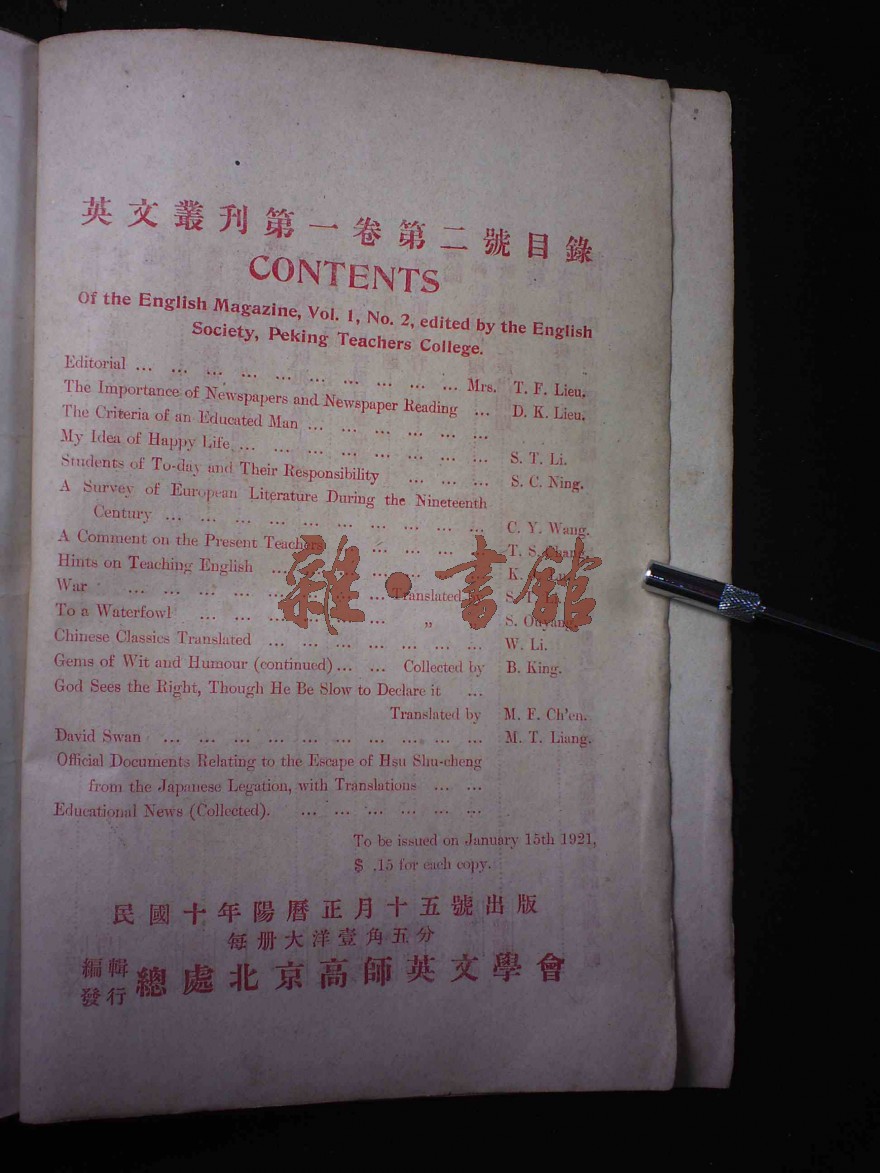 英文叢刊第一卷第二號目錄
CONTENTS
Of the English Magazine, Vol. 1, No. 2, edited by the English
Society, Peking Teachers College.
Editorial ... ... ... ... ... ... ... ... ... ... Mrs. T. F. Lieu.
The Importance of Newspapers and Newspaper Reading ... D. K. Lieu.
The Criteria of an Educated Man ... ... ... ... ... ...
My Idea of Happy Life ... ... ... ... ... ... ... ... S. T. Li.
Students of To-day and Their Responsibility ... ... ... S. C. Ning.
A Survey of European Literature During the Nineteenth
Century ... ... ... ... ... ... ... ... ... ... C. Y. Wang.
A Comment on the Present Teachers ... ... ... ... T. S. Chang.
Hints on Teaching English ... ... ... ... ... K.
War ... ... ... ... ... ... ... ... Translated by S.
To a Waterfowl ... ... ... ... ... ... „ „ S. Ouyang.
Chinese Classics Translated ... ... ... ... ... ... ... W. Li.
Gems of Wit and Humour (continued) ... ... Collected by B. King.
God Sees the Right, Though He Be Slow to Declare it ...
Translated by M. F. Ch'en.
David Swan ... ... ... ... ... ... ... ... ... ... M. T. Liang.
Official Documents Relating to the Escape of Hsu Shu-cheng
from the Japanese Legation, with Translations ... ...
Educational News (Collected). ... ... ... ... ... ...
To be issued on January 15th 1921,
$ .15 for each copy.
民國十年陽曆正月十五號出版
每册大洋壹角五分
編輯發行總處北京高師英文學會
雜·書館